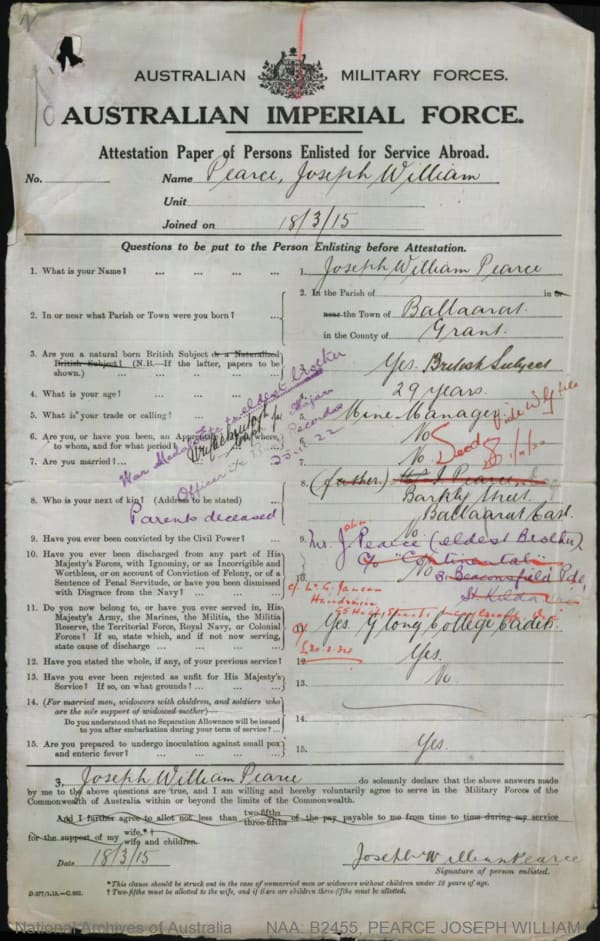 AUSTRALIAN MILITARY FORCES.
AUSTRALIAN IMPERIAL FORCE.
Attestation Paper of Persons Enlisted for Service Abroad.
No. Name Pearce, Joseph William
Unit
Joined on 18/3/15
Questions to be put to the Person Enlisting before Attestation.
1. What is your Name? ... ... ... ... 1. Joseph William Pearce
2. In or near what Parish or Town were you born? ... 2. In the Parish of in or
near the Town of Ballaarat
in the County of Grant.
3. Are you a natural born British Subject or a Naturalized
British Subject? (N.B.—If the latter, papers to be
shown.) ... ... ... ... Yes. British Subject
4. What is your age? ... ... 29 years.
5. What is your trade or calling? ... 5. Mine Manager
6. Are you, or have you been, an Apprentice where,
to whom, and for what period? 6. No
7. Are you married? ... 7. No
Dead
War Medals etc eldest brother
Officer i/c Base Records
Major
23.11.22
8. Who is your next of kin? (Address to be stated) ... 8. (father) Pearce
Barkly Street
Ballaarat East.
Parents deceased
9. Have you ever been convicted by the Civil Power? ... 9. No
Mr. John J. Pearce (eldest Brother)
C/o "Continental"
31 Beaconsfield Pde
St Kilda
10. Have you ever been discharged from any part of His
Majesty's Forces, with Ignominy, or as Incorrigible and
Worthless, or on account of Conviction of Felony, or of a
Sentence of Penal Servitude, or have you been dismissed
with Disgrace from the Navy? ... ... ... 10. No
11. Do you now belong to, or have you ever served in, His
Majesty's Army, the Marines, the Militia, the Militia
Reserve, the Territorial Force, Royal Navy, or Colonial
Forces? If so, state which, and if not now serving,
state cause of discharge ... ... ... Yes. G'long College Cadets.
12. Have you stated the whole, if any, of your previous service? 12. Yes.
13. Have you ever been rejected as unfit for His Majesty's
Service? If so, on what grounds? ... ... ... 13. No.
14. (For married men, widowers with children, and soldiers who
are the sole support of widowed mother)—
Do you understand that no Separation Allowance will be issued
to you after embarkation during your term of service? ... 14.
15. Are you prepared to undergo inoculation against small pox
and enteric fever? ... ... ... ... 15. Yes.
I, Joseph William Pearce do solemnly declare that the above answers made
by me to the above questions are true, and I am willing and hereby voluntarily agree to serve in the Military Forces of the
Commonwealth of Australia within or beyond the limits of the Commonwealth.
And I further agree to allot not less than two-fifths three-fifths of the pay payable to me from time to time during my service
for the support of my wife.* † wife and children.
Date 18/3/15 Joseph William Pearce
Signature of person enlisted.
*This clause should be struck out in the case of unmarried men or widowers without children under 18 years of age.
† Two-fifths must be allotted to the wife, and if there are children three-fifths must be allotted.
National Archives of Australia NAA: B2455, PEARCE JOSEPH WILLIAM